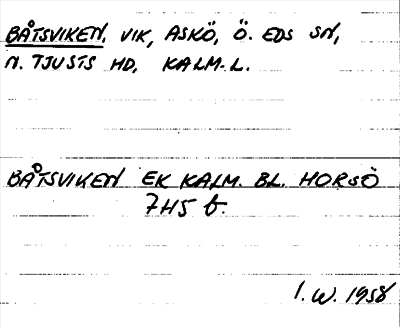 BÅTSVIKEN, VIK, ASKÖ, Ö. EDS SN,
N. TJUSTS HD, KALM. L.
BÅTSVIKEN EK KALM. BL. HORSÖ
7H5 b.
I. W. 1958